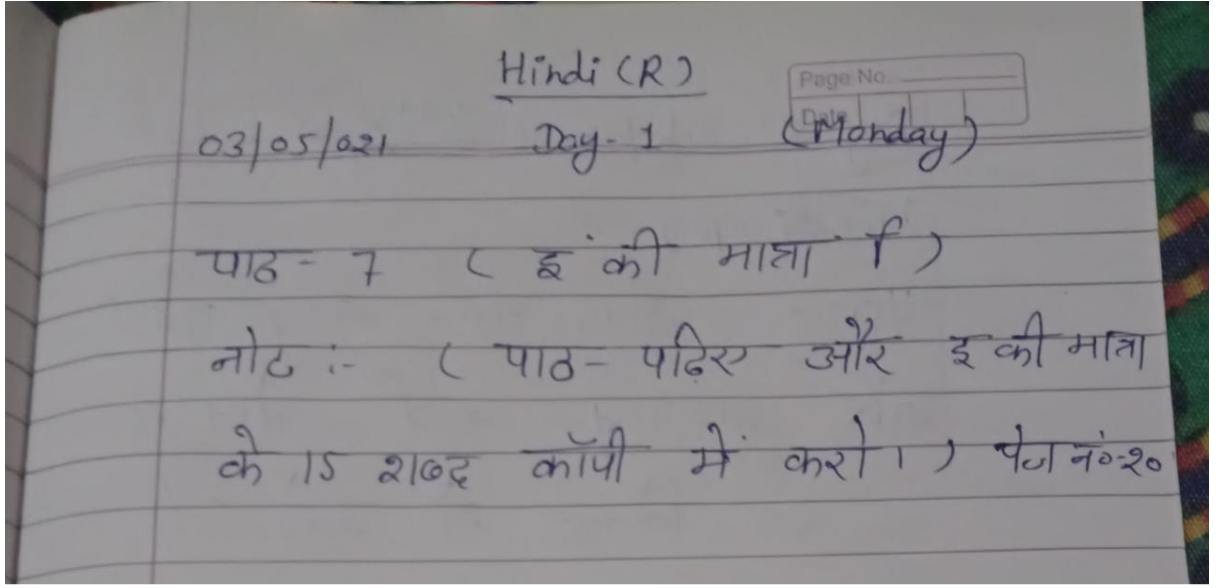 Hindi (R)
Page No.
Date
03/05/021 Day- 1 (Monday)
पाठ - 7 ( इ की मात्रा ि )
नोट :- ( पाठ- पढ़िए और इ की मात्रा
के 15 शब्द कॉपी में करो। ) पेज नं०-२०